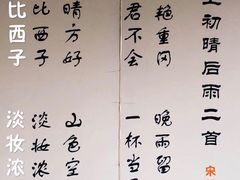 上初晴后雨二首
宋
艳重冈
晚雨留
君不会
一杯当
晴方好
山色空
比西子
淡妆浓
比西子
淡妆浓